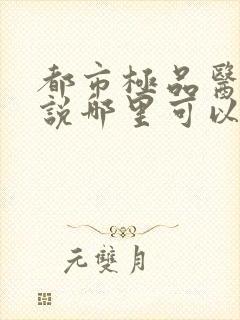 都市極品醫
說哪里可以
元雙月